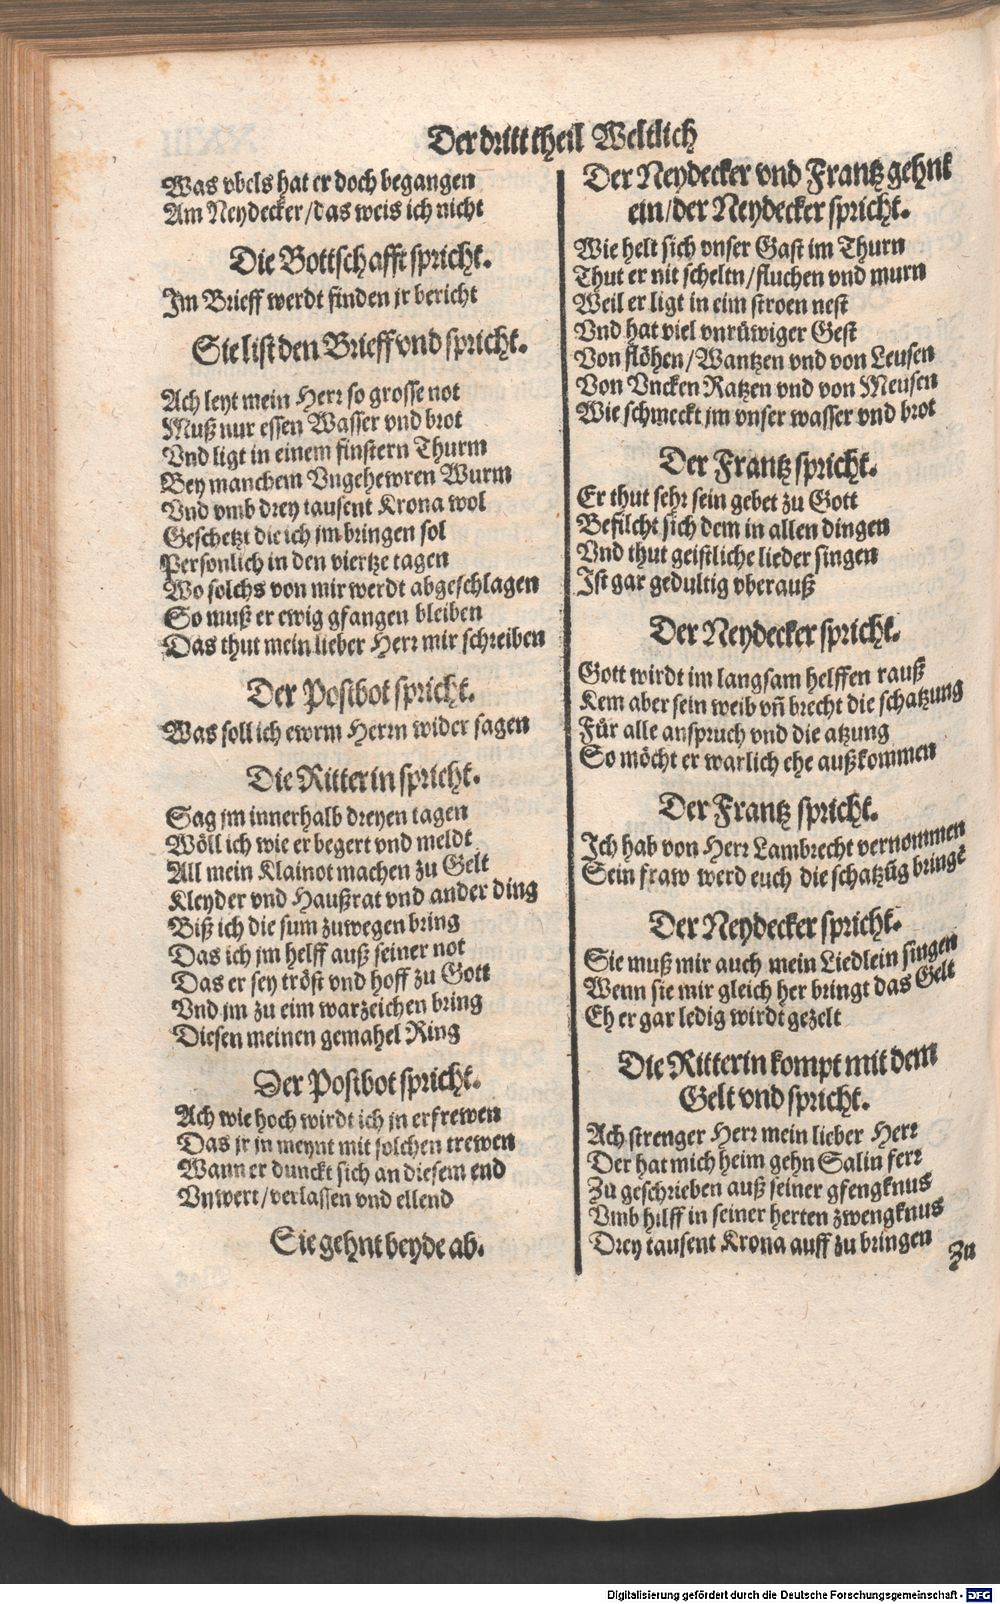 Der dritt theil Weltlich
Was vbels hat er doch begangen
Am Neydecker/das weis ich nicht
Die Bottschafft spricht.
Im Brieff werdt finden jr bericht
Sie list den Brieff vnd spricht.
Ach leyt mein Herr so grosse not
Muß nur essen Wasser vnd brot
Vnd ligt in einem finstern Thurm
Bey manchem Vngehewren Wurm
Vnd vmb drey tausent Krona wol
Geschetzt die ich jm bringen sol
Personlich in den viertze tagen
Wo solchs von mir werdt abgeschlagen
So muß er ewig gfangen bleiben
Das thut mein lieber Herr mir schreiben
Der Postbot spricht.
Was soll ich ewrm Herrn wider sagen
Die Ritterin spricht.
Sag jm innerhalb dreyen tagen
Wöll ich wie er begert vnd meldt
All mein Klainot machen zu Gelt
Kleyder vnd Haußrat vnd ander ding
Biß ich die sum zuwegen bring
Das ich jm helff auß seiner not
Das er sey tröst vnd hoff zu Gott
Vnd jm zu eim warzeichen bring
Diesen meinen gemahel Ring
Der Postbot spricht.
Ach wie hoch wirdt ich jn erfrewen
Das jr jn meynt mit solchen trewen
Wann er dunckt sich an diesem end
Vnwert/verlassen vnd ellend
Sie gehnt beyde ab.
Der Neydecker vnd Frantz gehnt
ein/der Neydecker spricht.
Wie helt sich vnser Gast im Thurn
Thut er nit scheltn/fluchen vnd murn
Weil er ligt in eim stroen nest
Vnd hat viel vnrüwiger Gest
Von flöhen/Wantzen vnd von Leusen
Von Vncken Ratzen vnd von Meusen
Wie schmeckt jm vnser wasser vnd brot
Der Frantz spricht.
Er thut sehr sein gebet zu Gott
Befilcht sich dem in allen dingen
Vnd thut geistliche lieder singen
Ist gar gedultig vberauß
Der Neydecker spricht.
Gott wirdt im langsam helffen rauß
Kem aber sein weib vñ brecht die schatzung
Für alle anspruch vnd die atzung
So möcht er warlich ehe außkommen
Der Frantz spricht.
Ich hab von Herr Lambrecht vernommen
Sein fraw werd euch die schatzūg bringē
Der Neydecker spricht.
Sie muß mir auch mein Liedlein singen
Wenn sie mir gleich her bringt das Gelt
Eh er gar ledig wirdt gezelt
Die Ritterin kompt mit dem
Gelt vnd spricht.
Ach strenger Herr mein lieber Herr
Der hat mich heim gehn Salin ferr
Zu geschrieben auß seiner gfengknus
Vmb hilff in seiner herten zwengknus
Drey tausent Krona auff zu bringen
Zu
Digitalisierung gefördert durch die Deutsche Forschungsgemeinschaft - DFG